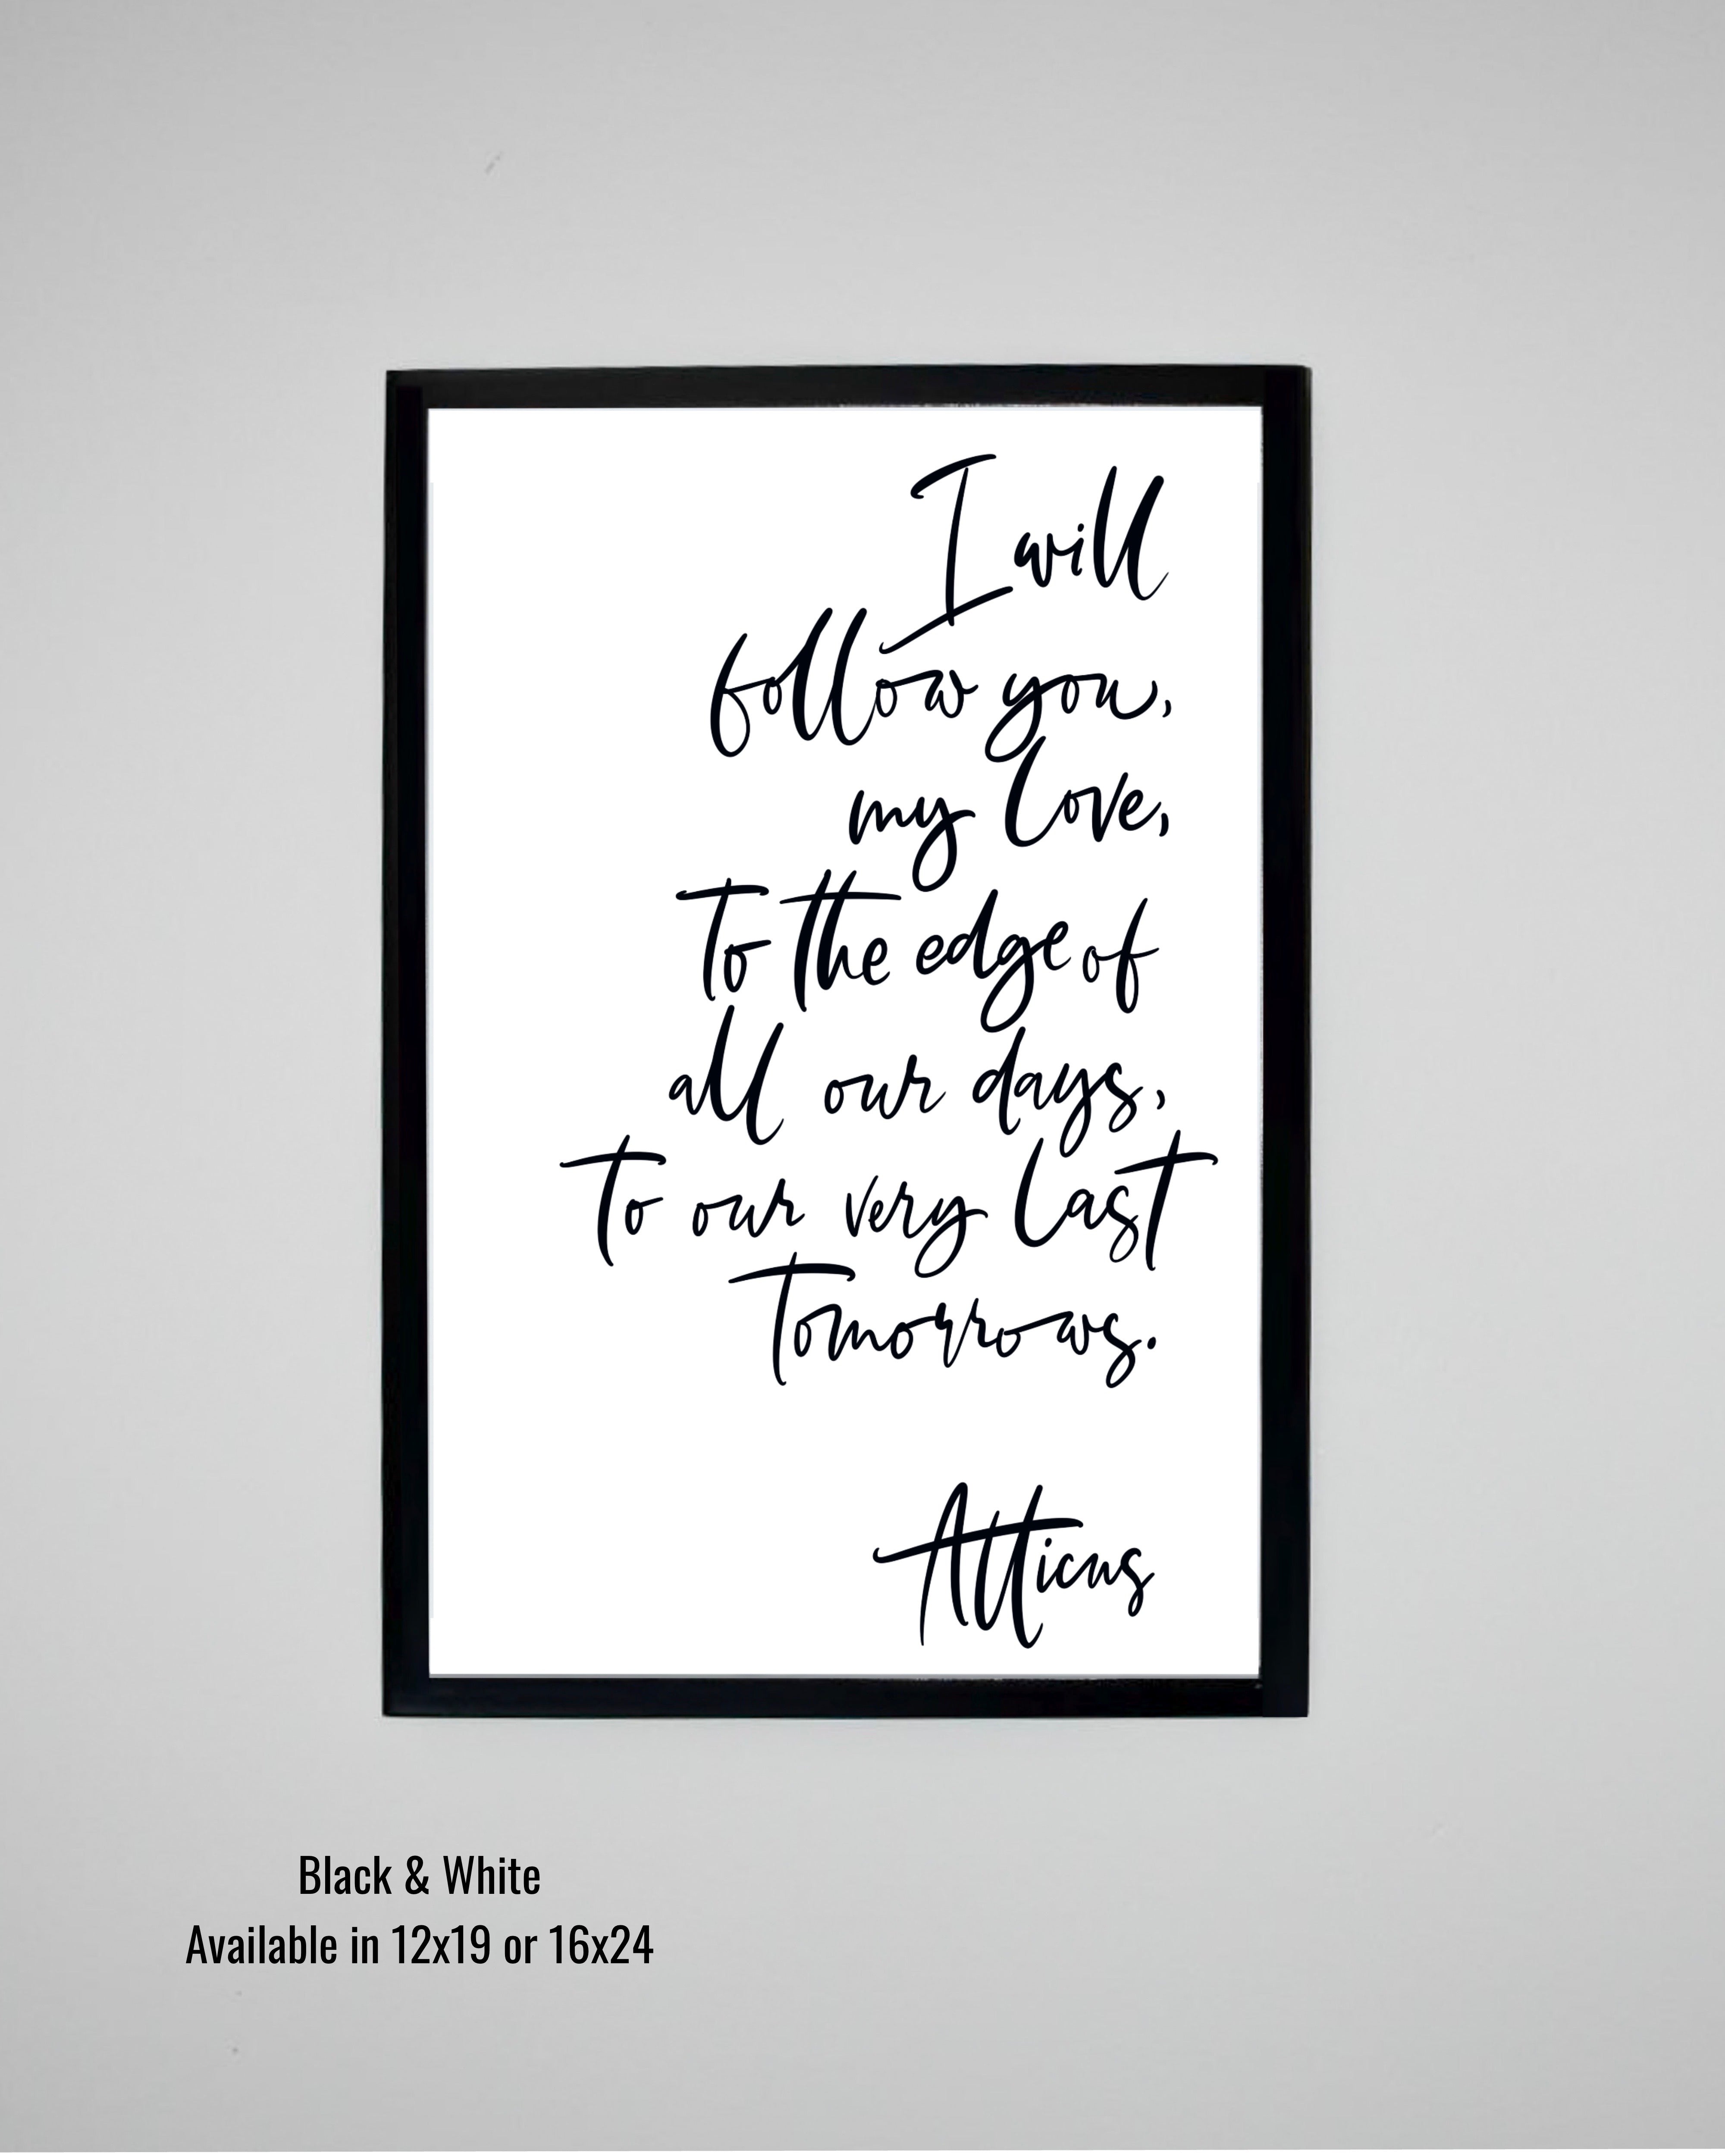 I will
follow you,
my love,
To the edge of
all our days,
To our very last
Tomorrows.
Atticus
Black & White
Available in 12x19 or 16x24